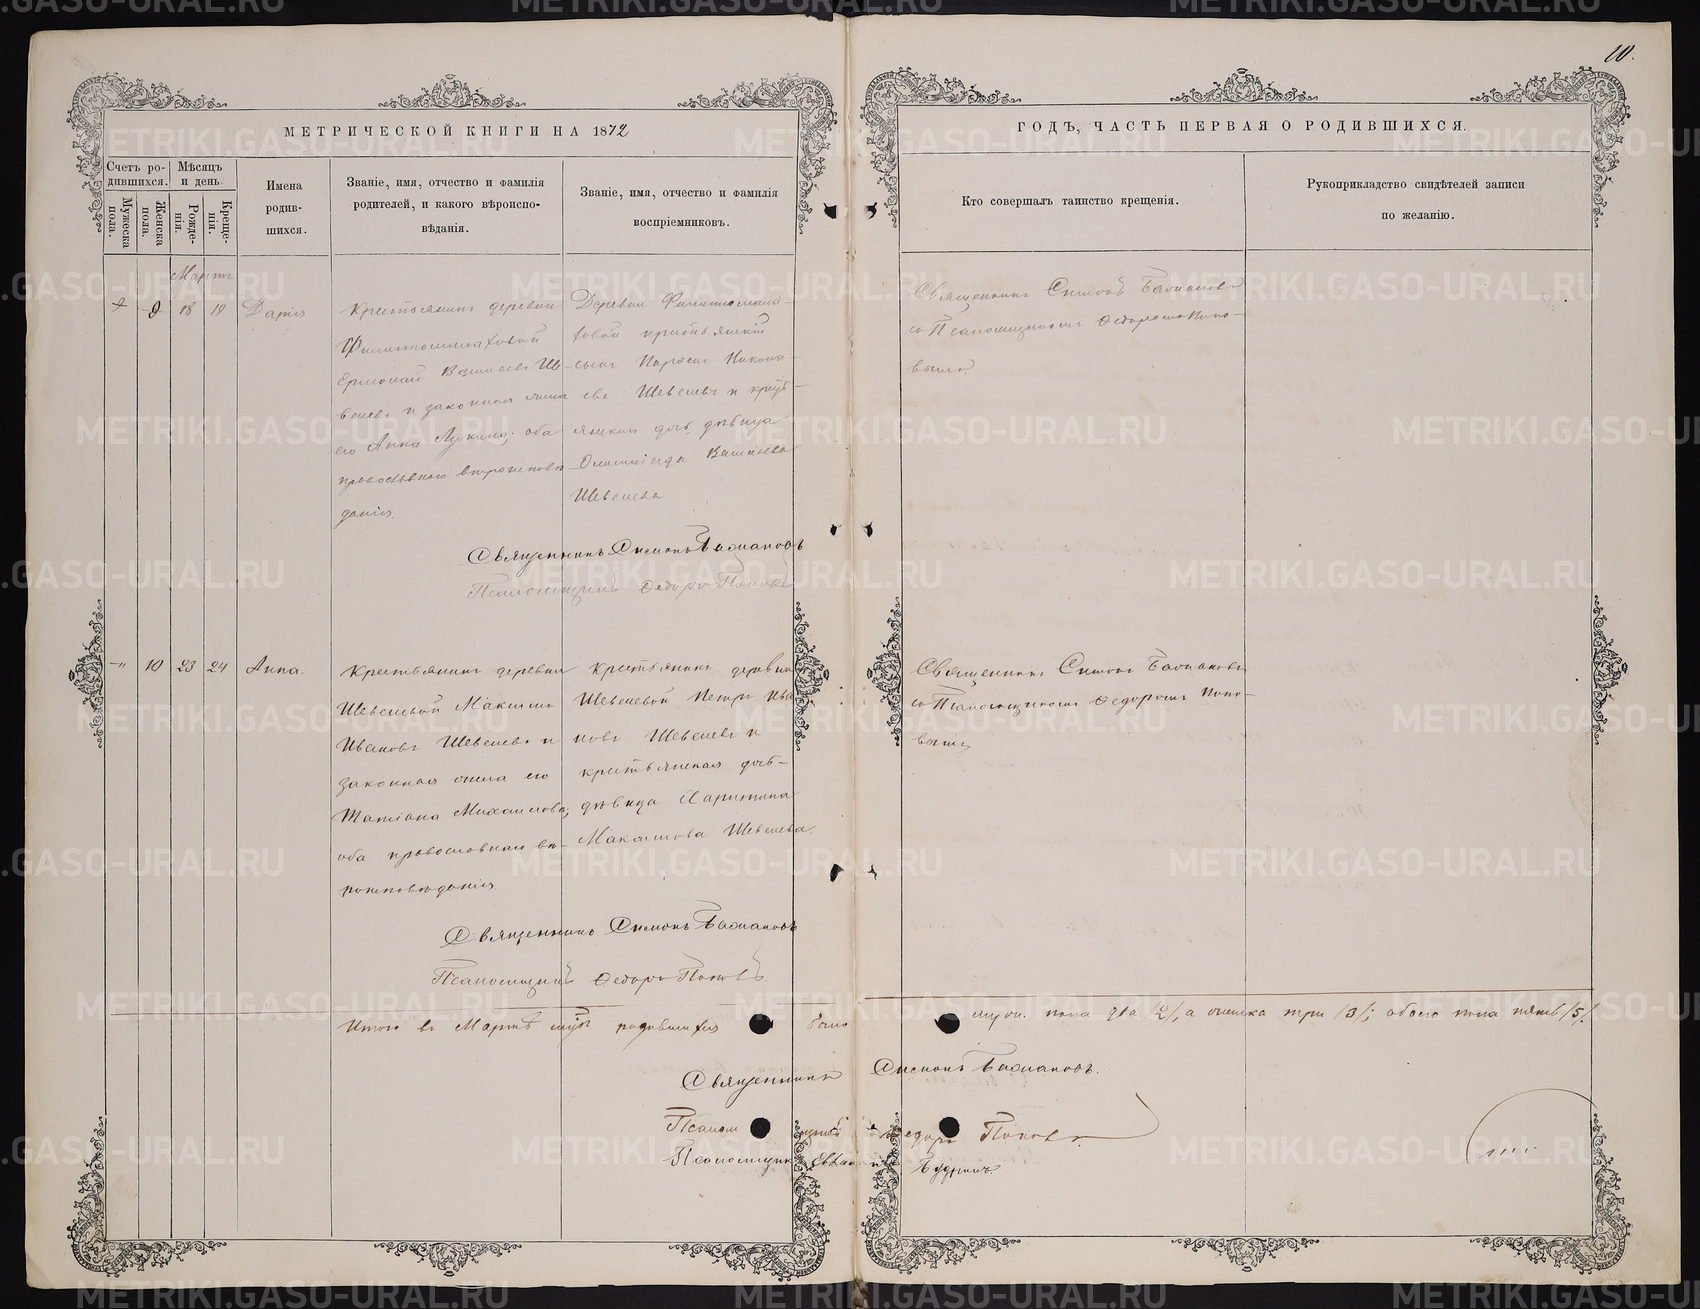 10.
МЕТРИЧЕСКОЙ КНИГИ НА 1872
ГОДЪ, ЧАСТЬ ПЕРВАЯ О РОДИВШИХСЯ.
Счетъ ро-
дившихся.
Мужеска пола.
Женска пола.
Мѣсяцъ
и день.
Рожде-
нія.
Креще-
нія.
Имена
родив-
шихся.
Званіе, имя, отчество и фамилія
родителей, и какого вѣроиспо-
вѣданія.
Званіе, имя, отчество и фамилія
воспріемниковъ.
Кто совершалъ таинство крещенія.
Рукоприкладство свидѣтелей записи
по желанію.
Мартъ
9 18 19 Дарія
Крестьянинъ деревни
Ермолай Васильевъ Ше-
велевъ и законная жена
его Анна Лукина, оба
православнаго вѣроиспове-
данія.
Деревни
крестьянскій
сынъ Николա-
евъ Шевелевъ и кресть-
янская дочь дѣвица
Шевелева
Священникъ Симонъ
съ Псаломщикомъ Ѳедоромъ Попо-
вымъ.
Священникъ Симонъ
Псаломщикъ Ѳедоръ Поповъ
10 23 24 Анна.
Крестьянинъ деревни
Шевелевой Максимъ
Ивановъ Шевелевъ и
законная жена его
Татіана Михаилова,
оба православнаго вѣ-
роисповѣданія
Крестьянинъ деревни
Шевелевой Петръ Ива-
новъ Шевелевъ и
крестьянская дочь
дѣвица Харитина
Максимова Шевелева.
Священникъ Симонъ
съ Псаломщикомъ Ѳедоромъ Попо-
вымъ
Священникъ Симонъ
Псаломщикъ Ѳедоръ Поповъ
Итого въ Мартѣ родившихся было муж. пола два /2/, а женска три /3/; обоего пола пять /5/.
Священникъ Симонъ
Ѳедоръ Поповъ
Псаломщикъ
METRIKI.GASO-URAL.RU